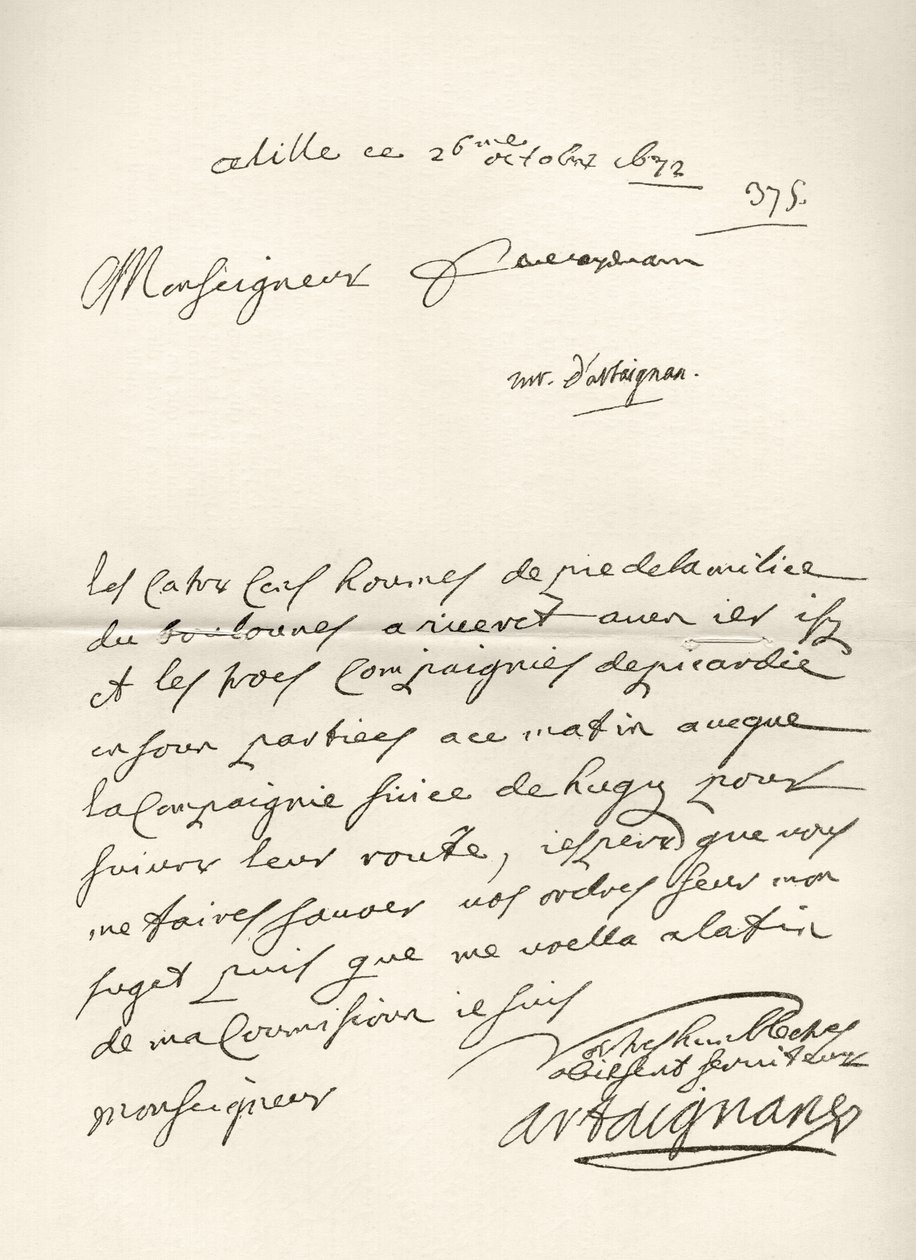 alille ce 26me octobre 1672
375.
Monseigneur
mr. d'artaignan.
les catre cens houmes de pie de la milice
du boulounes ariveret auer ier isy
et les troes Compaignies de picardie
en soun partiees ace matin aveque
la Compaignie suice de hugy pour
suivre leur route, iespere que vous
me faires savoer vos ordres seur mon
suget puis que me voella alafin
de ma Coumisioun ie suis
vostre tres humble et tres
obiesent serviteur
monseigneur
artaignan